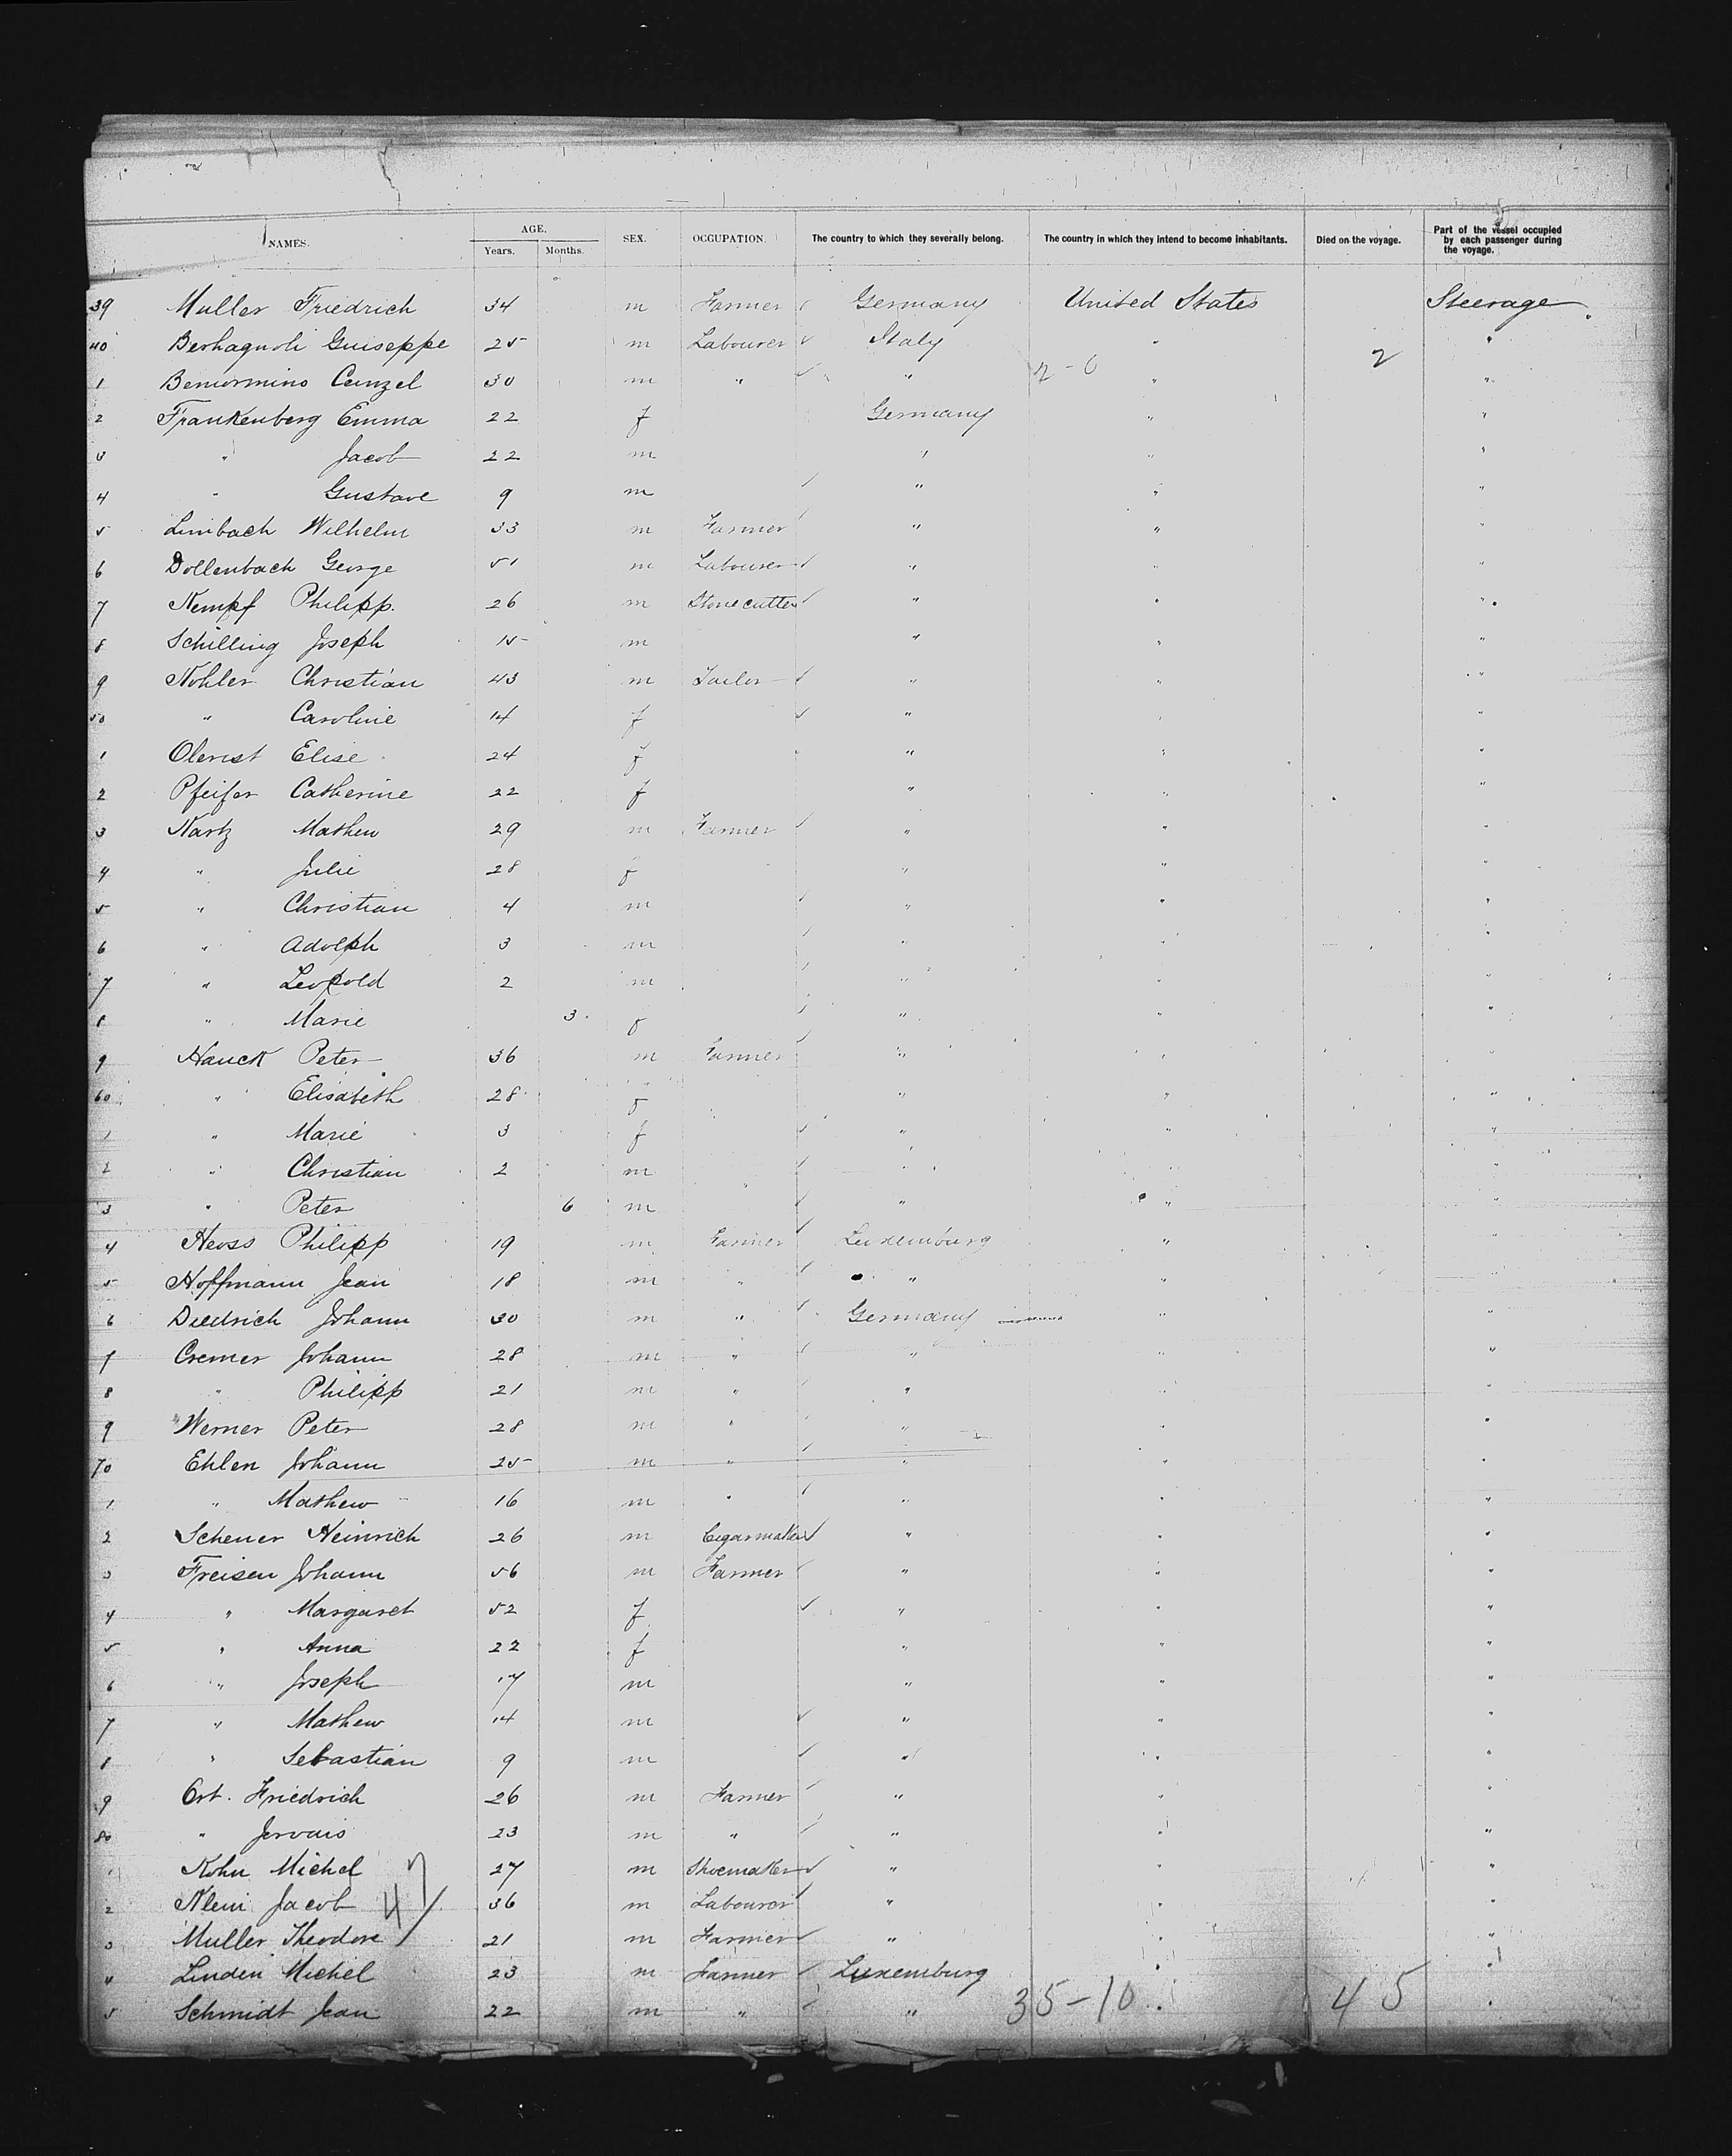 NAMES. AGE. Years. Months. SEX. OCCUPATION. The country to which they severally belong. The country in which they intend to become inhabitants. Died on the voyage. Part of the vessel occupied by each passenger during the voyage.
39 Muller Friedrich 34 m Farmer Germany United States Steerage
40 Guiseppe 25 m Labourer Italy " "
1 30 m " " 2-0 " 2 "
2 Frankenberg Emma 22 f Germany " "
3 " Jacob 22 m " " "
4 " Gustave 9 m " " "
5 Limbach Wilhelm 33 m Farmer " " "
6 Dollenbach George 51 m Labourer " " "
7 Kempf Philipp. 26 m Stonecutter " " "
8 Schilling Joseph 15 m " " "
9 Kohler Christian 43 m Tailor " " "
50 " Caroline 14 f " " "
1 Elise 24 f " " "
2 Pfeifer Catherine 22 f " " "
3 Kartz Mathew 29 m Farmer " " "
4 " Julie 28 f " " "
5 " Christian 4 m " " "
6 " Adolph 3 m " " "
7 " Leopold 2 m " " "
8 " Marie 3 f " " "
9 Hauck Peter 36 m Farmer " " "
60 " Elisabeth 28 f " " "
1 " Marie 3 f " " "
2 " Christian 2 m " " "
3 " Peter 6 m " " "
4 Philipp 19 m Farmer Luxemburg " "
5 Hoffmann Jean 18 m " " " "
6 Diedrich Johann 30 m " Germany " "
7 Cremer Johann 28 m " " " "
8 " Philipp 21 m " " " "
9 Werner Peter 28 m " " " "
70 Ehlen Johann 25 m " " " "
1 " Mathew 16 m " " " "
2 Scheuer Heinrich 26 m Cigarmaker " " "
3 Freisen Johann 56 m Farmer " " "
4 " Margaret 52 f " " "
5 " Anna 22 f " " "
6 " Joseph 17 m " " "
7 " Mathew 14 m " " "
8 " Sebastian 9 m " " "
9 Ort. Friedrich 26 m Farmer " " "
80 " Jervais 23 m " " " "
1 Kohn Michel 27 m Shoemaker " " "
2 Klein Jacob 47 36 m Labourer " " "
3 Muller Theodore 21 m Farmer " " "
4 Linden Michel 23 m Farmer Luxemburg " "
5 Schmidt Jean 22 m " " 35-10 " 45 "